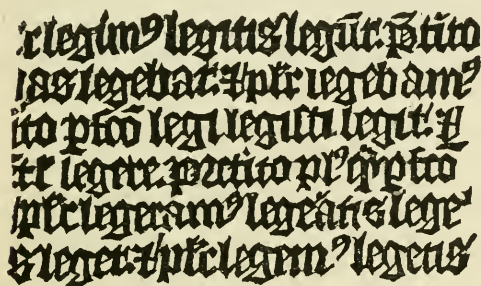 r legimꝰ legitis legūt. p̄tito
as legebat: ⁊ plr legebamꝰ
ito pfcō legi legisti legit: ⁊
legere. p̄tito plꝰq̄ pfcō
plr legeramꝰ legeātis lege
s leget: ⁊ plr legemꝰ legetis